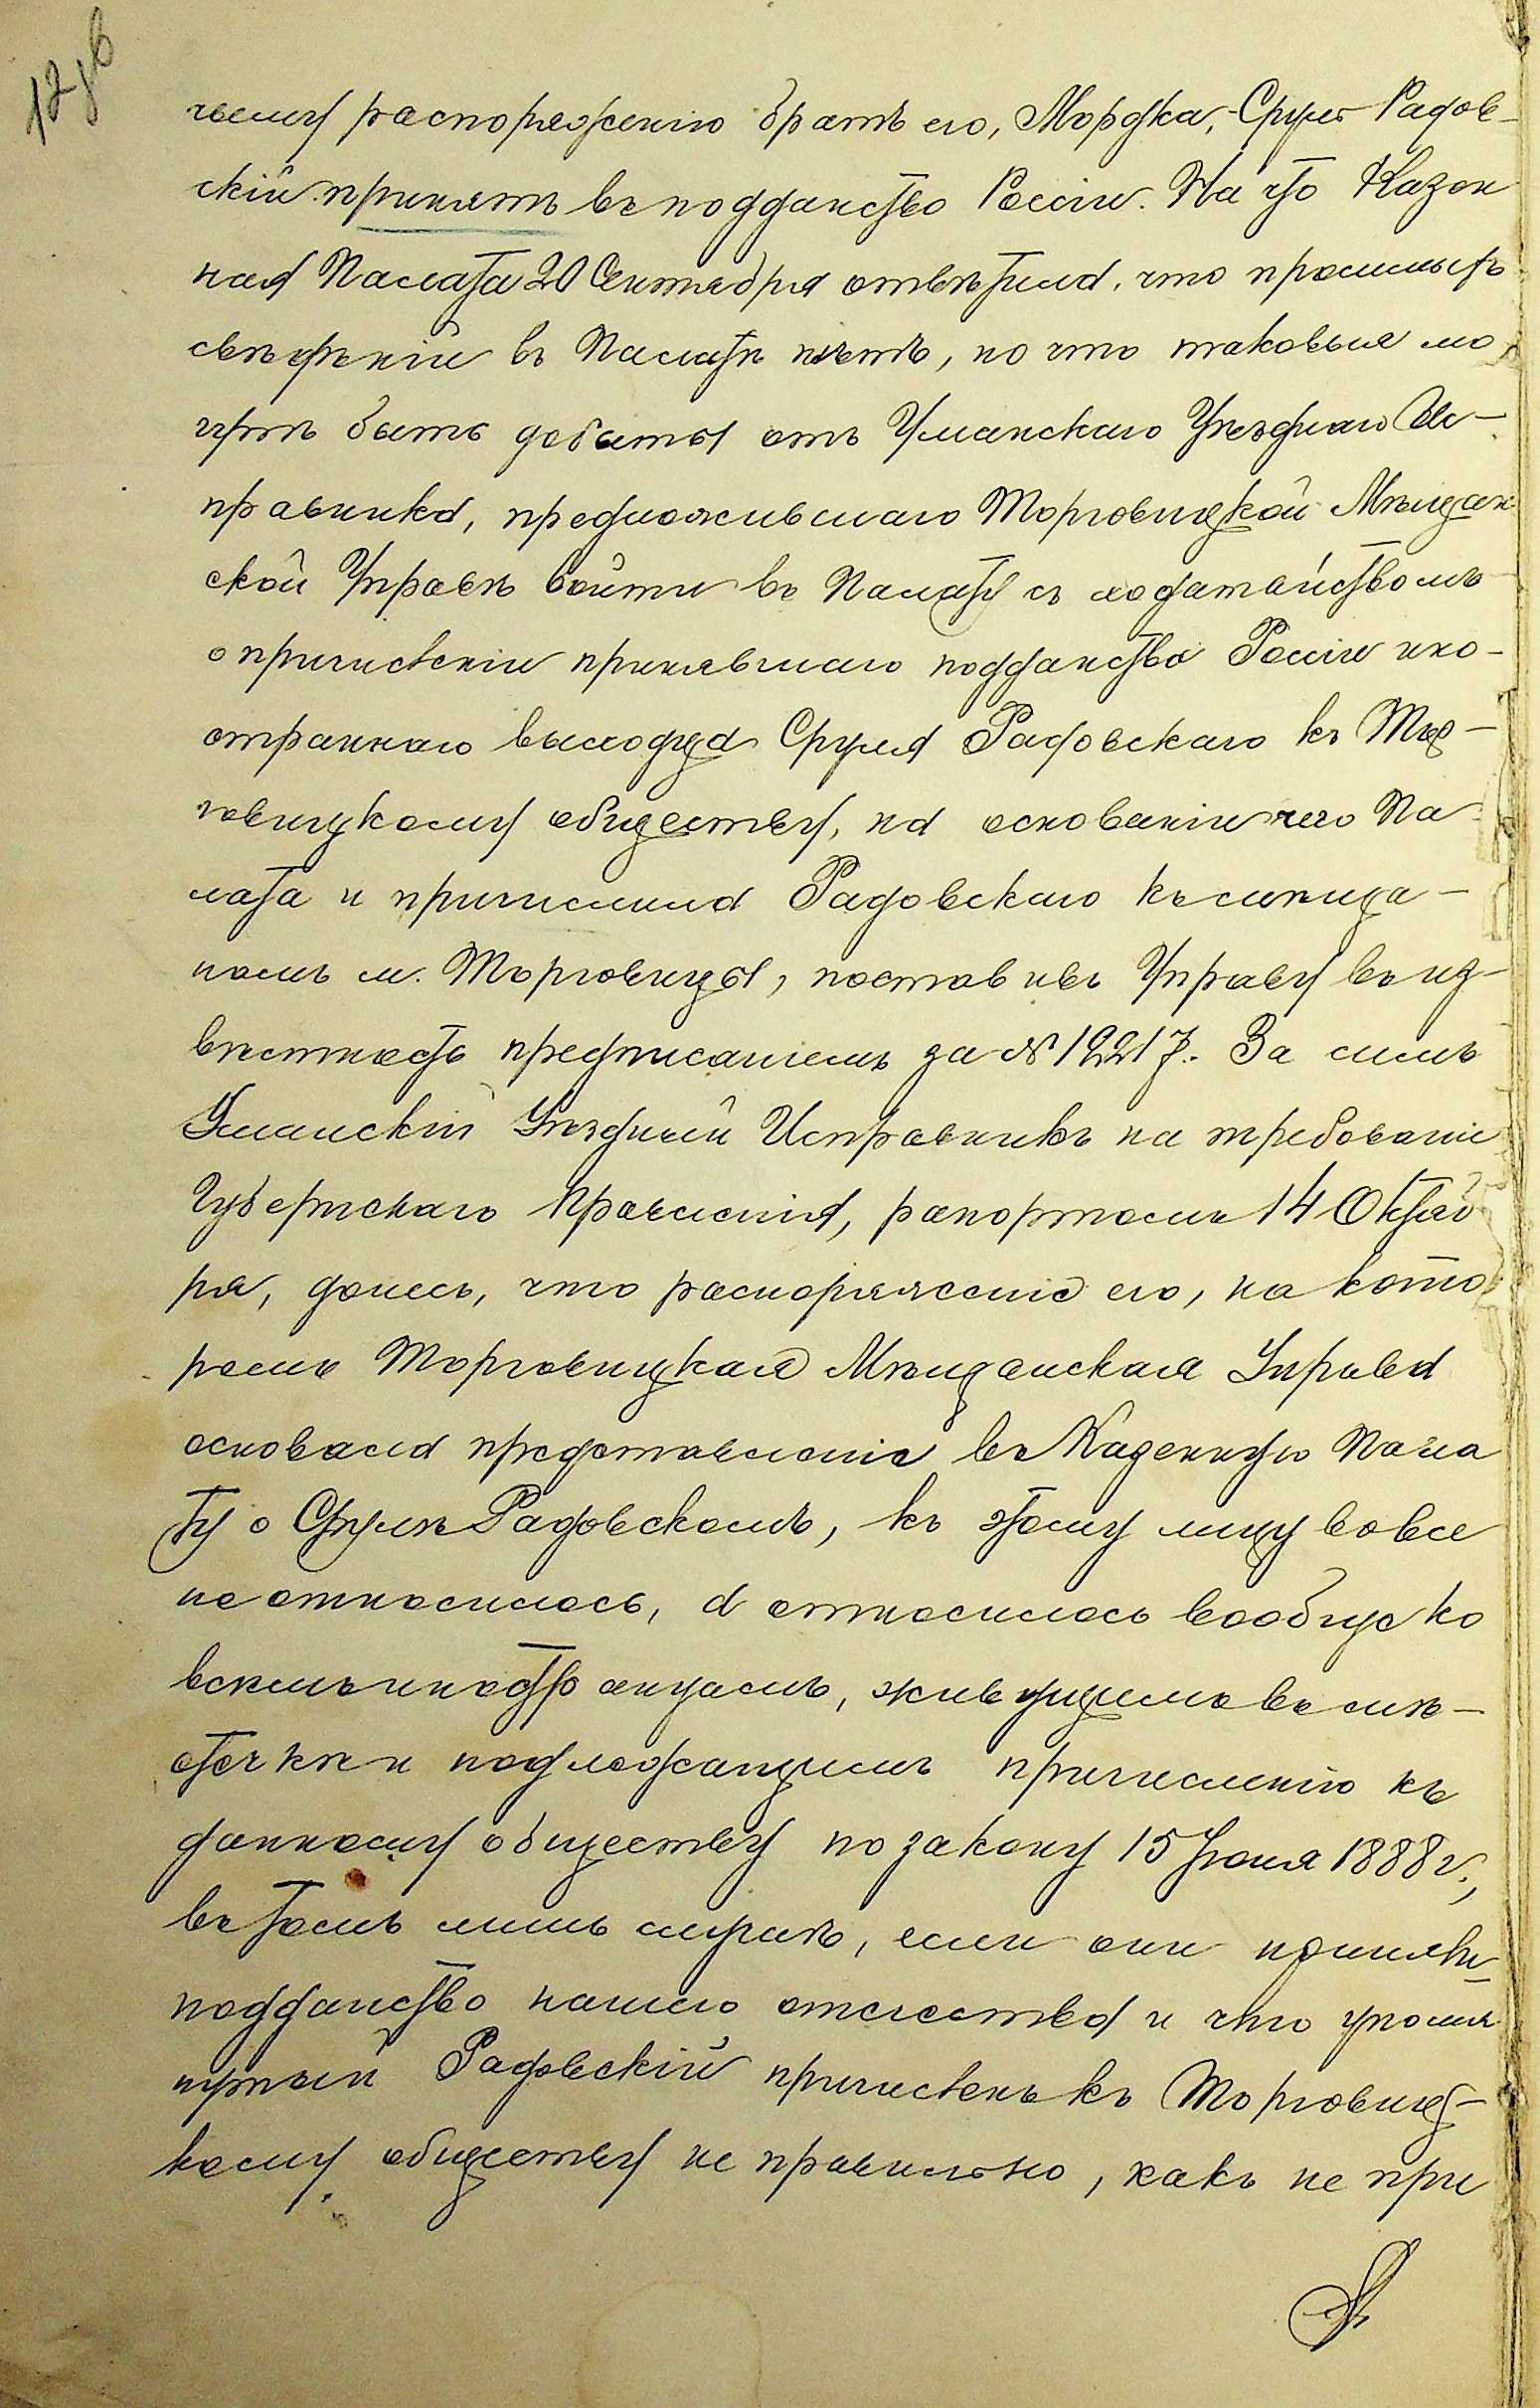 чьему распоряженію братъ его, Мордка, Сруль Радов-
скій принятъ въ подданство Россіи. На что Казен
ная Палата 20 Сентября отвѣтила, что просимыхъ
свѣдѣній въ Палатѣ нѣтъ, но что таковыя мо
гутъ быть добыты отъ Уманскаго Уѣзднаго Ис-
правника, предложившаго Торговицкой Мѣщан
ской Управѣ войти въ Палату съ ходатайствомъ
о причисленіи принявшаго подданство Россіи ино-
страннаго выходца Сруля Радовскаго къ Тор-
говицкому обществу, на основаніи чего Па-
лата и причислила Радовскаго къ мѣща-
намъ м. Торговицы, поставивъ Управу въ из-
вѣстность предписаніемъ за № 12217. За симъ
Уманскій Уѣздный Исправникъ на требованіе
Губернскаго Правленія, рапортомъ 14 Октяб
ря, донесъ, что распоряженіе его, на кото
ромъ Торговицкая Мѣщанская Управа
основала представленіе въ Казенную Пала
ту о Срулѣ Радовскомъ, къ этому лицу вовсе
не относилось, а относилось вообще ко
всѣмъ иностранцамъ, живущимъ въ мѣ-
стечкѣ и подлежащимъ причисленію къ
данному обществу по закону 15 Іюня 1888 г.,
въ томъ лишь случаѣ, если они приняли
подданство нашего отечества и что упомя
нутый Радовскій причисленъ къ Торговиц-
кому обществу не правильно, какъ не при